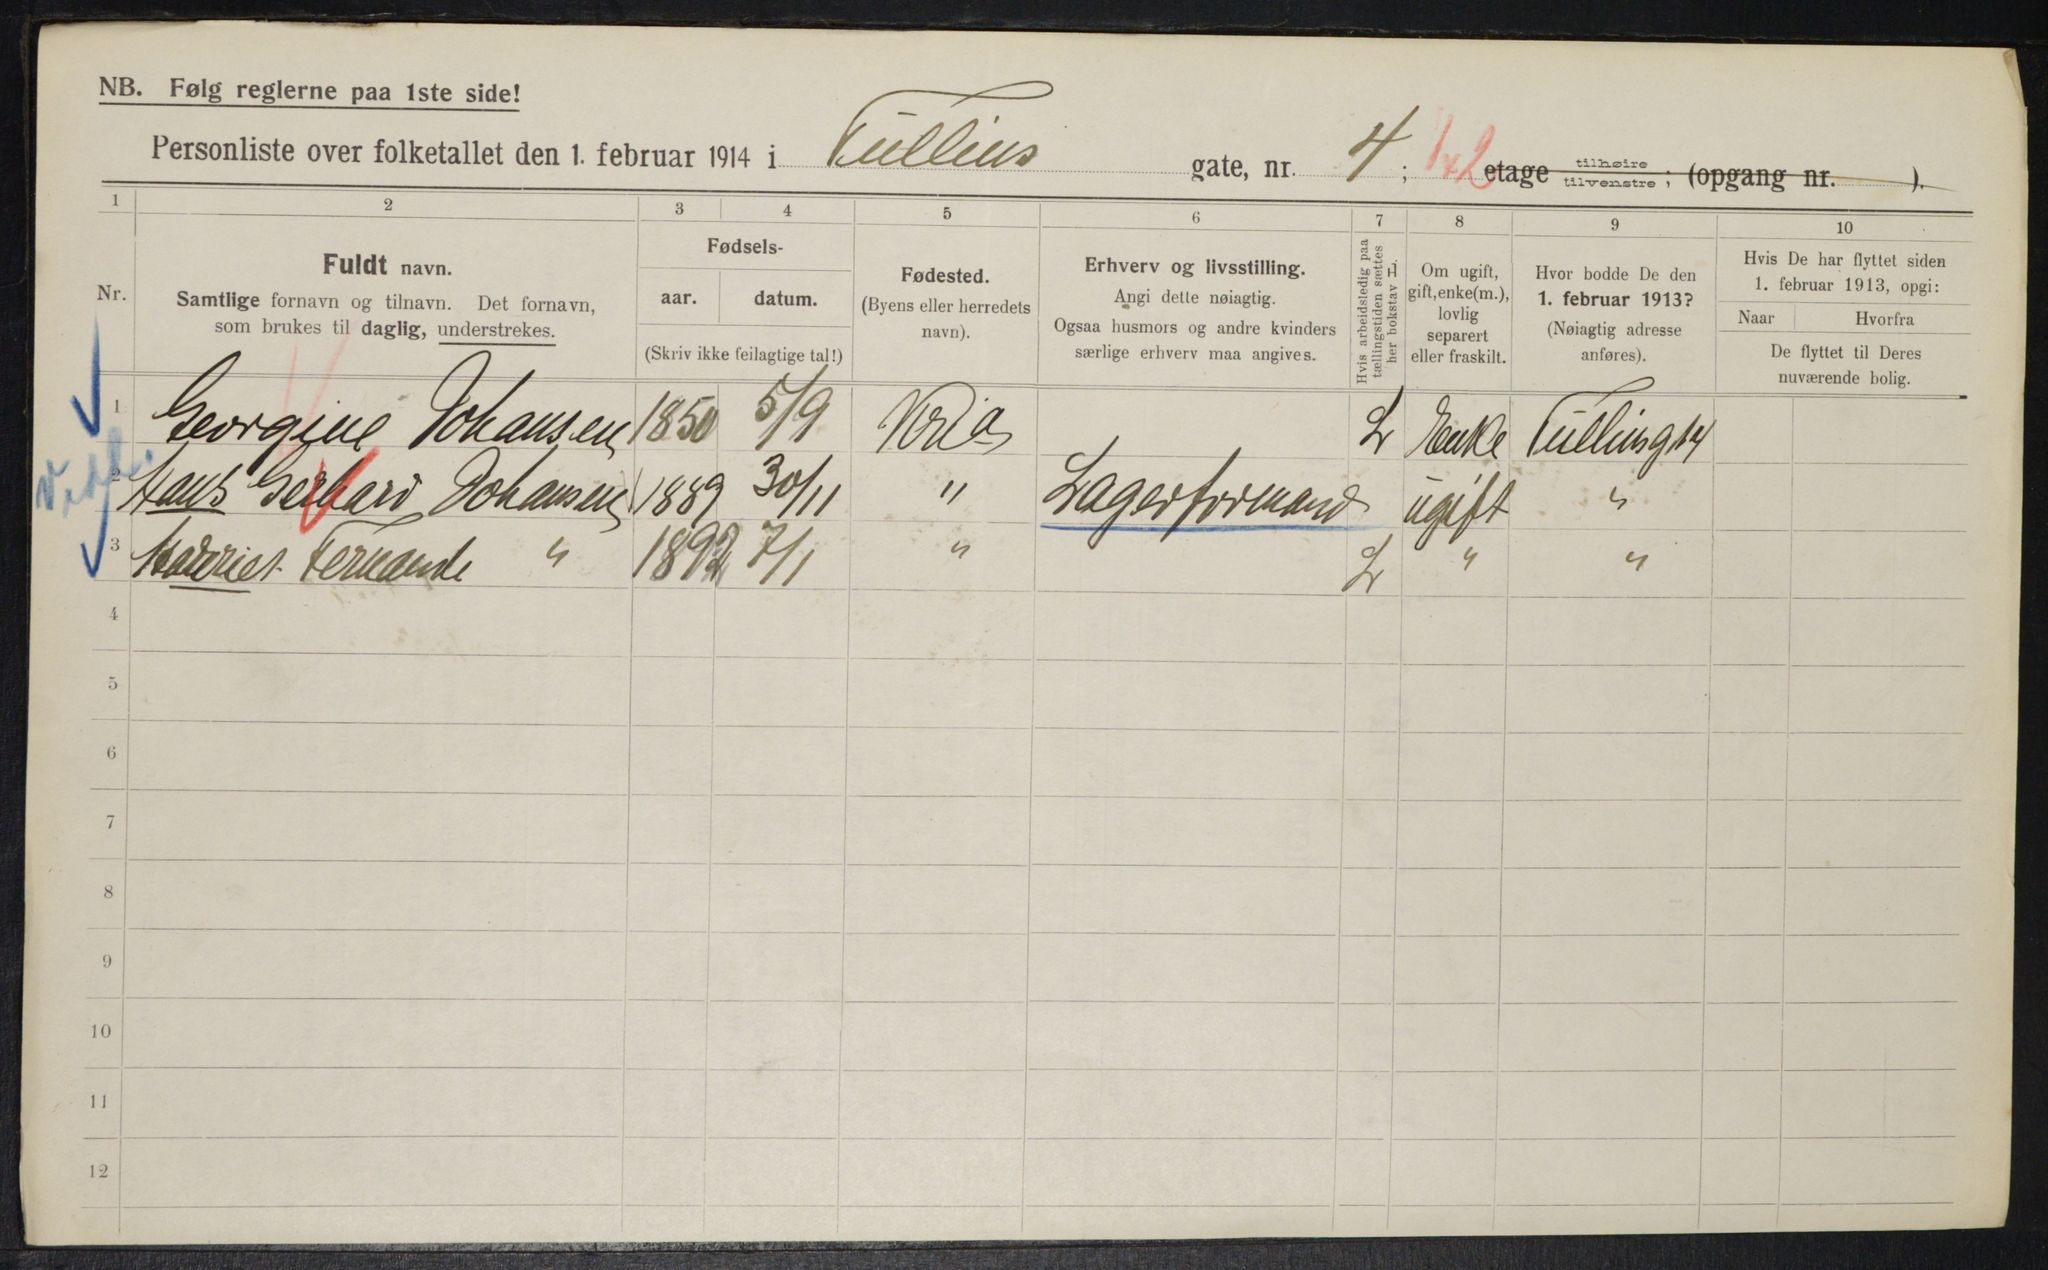 NB. Følg reglerne paa 1ste side!
Personliste over folketallet den 1. februar 1914 i Tullins gate, nr. 4; 1 x 2 etage tilhøire tilvenstre; (opgang nr. ).
1 2 3 4 5 6 7 8 9 10
Nr.
Fuldt navn.
Samtlige fornavn og tilnavn. Det fornavn,
som brukes til daglig, understrekes.
Fødsels-
aar. datum.
(Skriv ikke feilagtige tal!)
Fødested.
(Byens eller herredets
navn).
Erhverv og livsstilling.
Angi dette nøiagtig.
Ogsaa husmors og andre kvinders
særlige erhverv maa angives.
Hvis arbeidsledig paa
tællingstiden sættes
her bokstav L.
Om ugift,
gift, enke(m.),
lovlig
separert
eller fraskilt.
Hvor bodde De den
1. februar 1913?
(Nøiagtig adresse
anføres).
Hvis De har flyttet siden
1. februar 1913, opgi:
Naar Hvorfra
De flyttet til Deres
nuværende bolig.
1 Georgine Johansen 1850 5/9 Kria L Enke Tullinsg 14
2 Hans Gerhard Johansen 1889 30/11 " Lagerformand ugift "
3 Harriet Fernande " 1892 7/1 " L " "
4
5
6
7
8
9
10
11
12